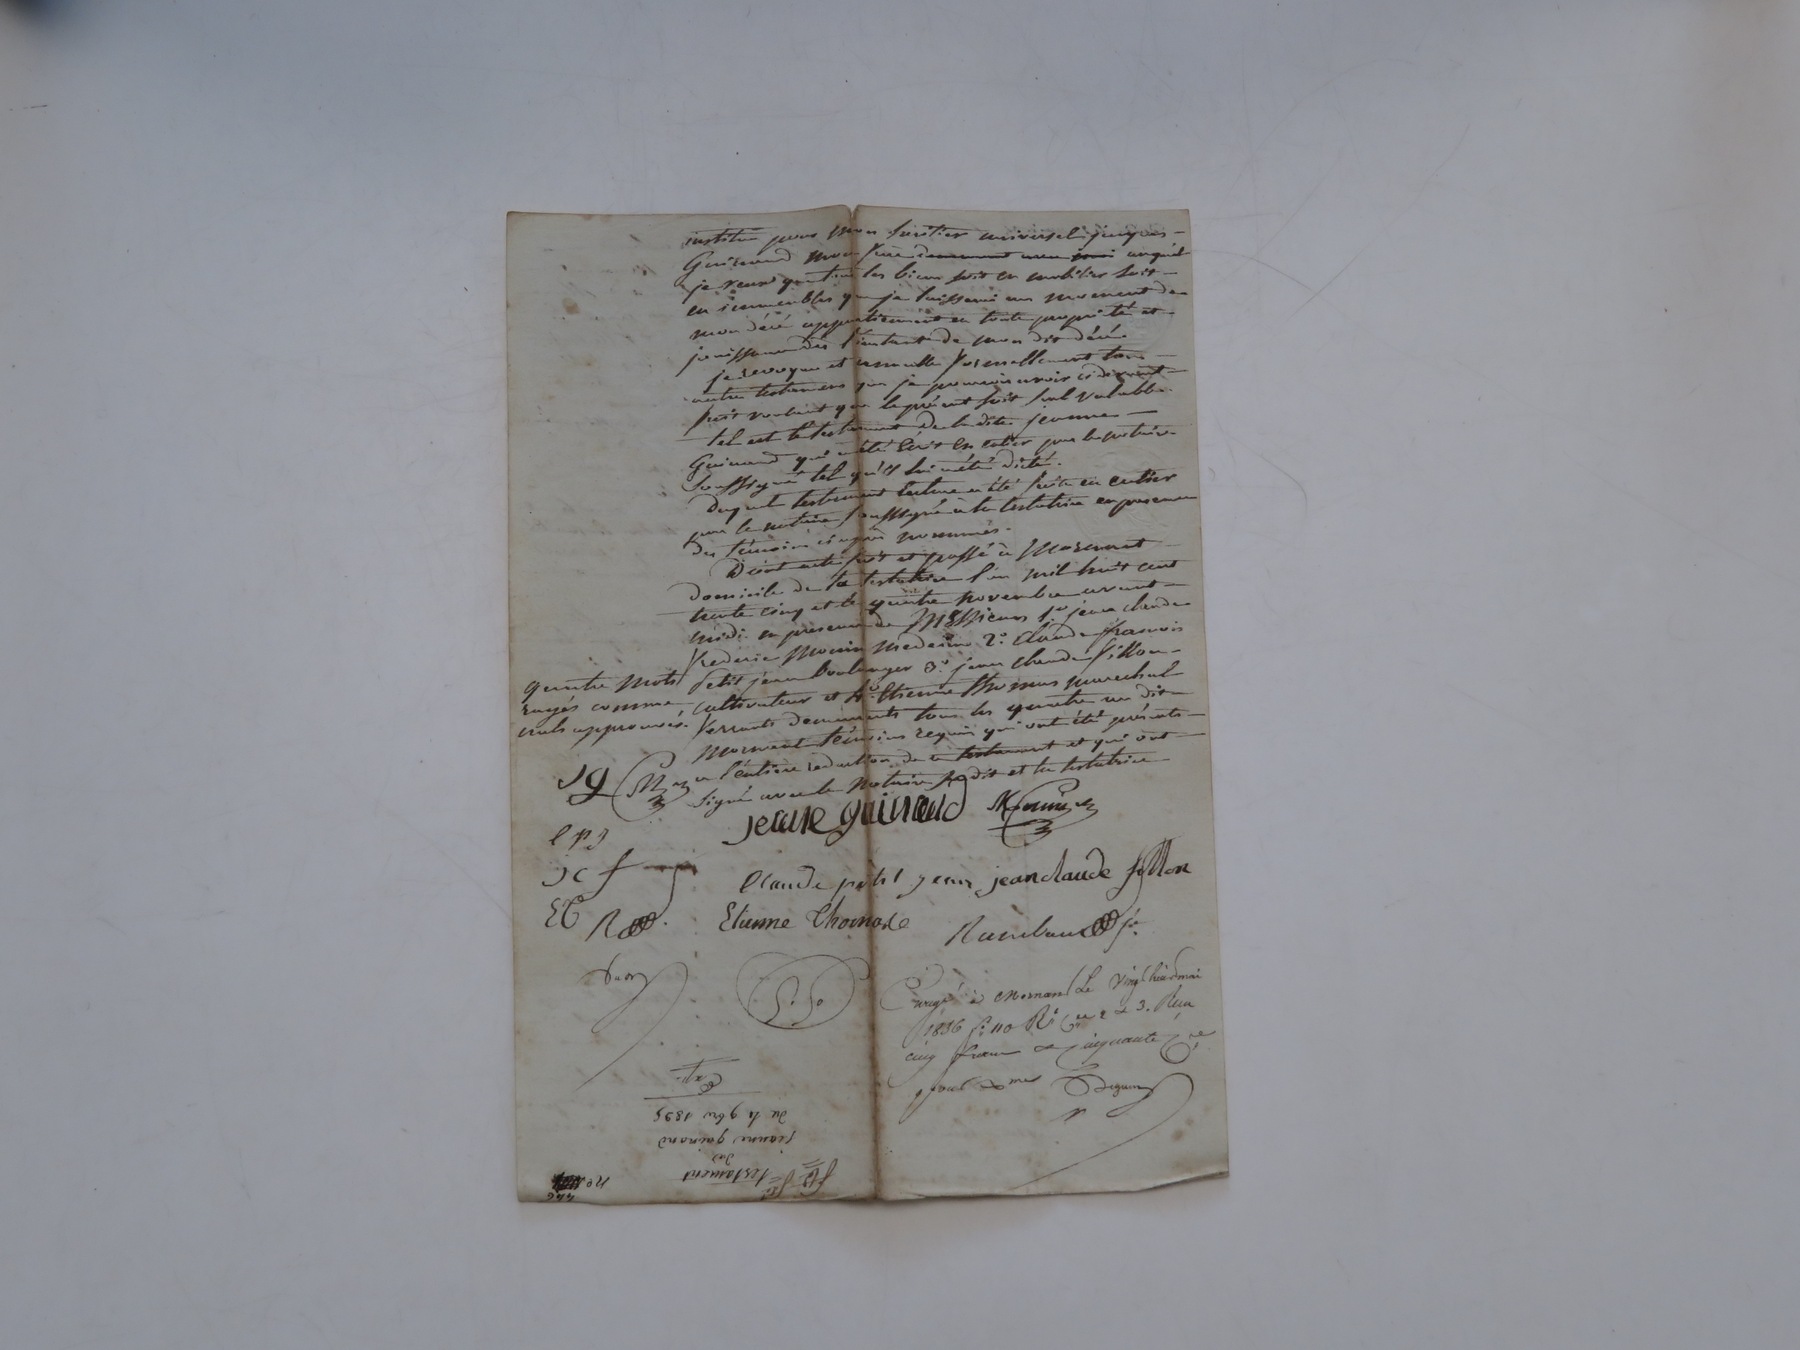 institue pour mon heritier universel jacques
Guinand mon frere auquel
je veux que tous les biens soit en mobilier soit
en immeubles que je laisserai au moment de
mon décé appartiennent en toute propriété et
jouissance dès l'instant de mon dit décé.
je revoque et annulle formellement tous
autre testamens que je pourrois avoir cidevant
fait voulant que le présent soit seul valable.
tel est le testament de la dite jeanne
Guinand qui a été écrit en entier par le notaire
soussigné tel qu'il lui a été dicté.
Duquel testament lecture a été faite en entier
par le notaire soussigné à la testatrice en presence
des témoins ci après nommés.
Dont acte fait et passé à Mornant
domicile de la testatrice l'an mil huit cent
trente cinq et le quatre novembre avant
midi en presence de Messieurs 1º jean claude
frederic Monin medecin 2º Claude françois
petit jean boulanger 3º jean claude fillon
cultivateur et 4º Etienne thomas marechal
ferrant demeurants tous les quatre au dit
Mornant témoins requis qui ont été présents
a l'entière redaction de ce testament et qui ont
signé avec le notaire susdit et la testatrice
quatre mots
rayés comme
nuls approuvés.
jg M
jeane guinand Monin
c p j
j c f
Claude petit jean jean claude fillon
E T R
Etienne Thomas Rambaud
Enregé à Mornant Le vingt huit mai
1836 fº 110 Rº Cses 2 et 3. Reçu
cinq francs et cinquante Cmes
pour dmes
testament
de
jeanne guinand
du 4 9bre 1835
Exp.
No
446